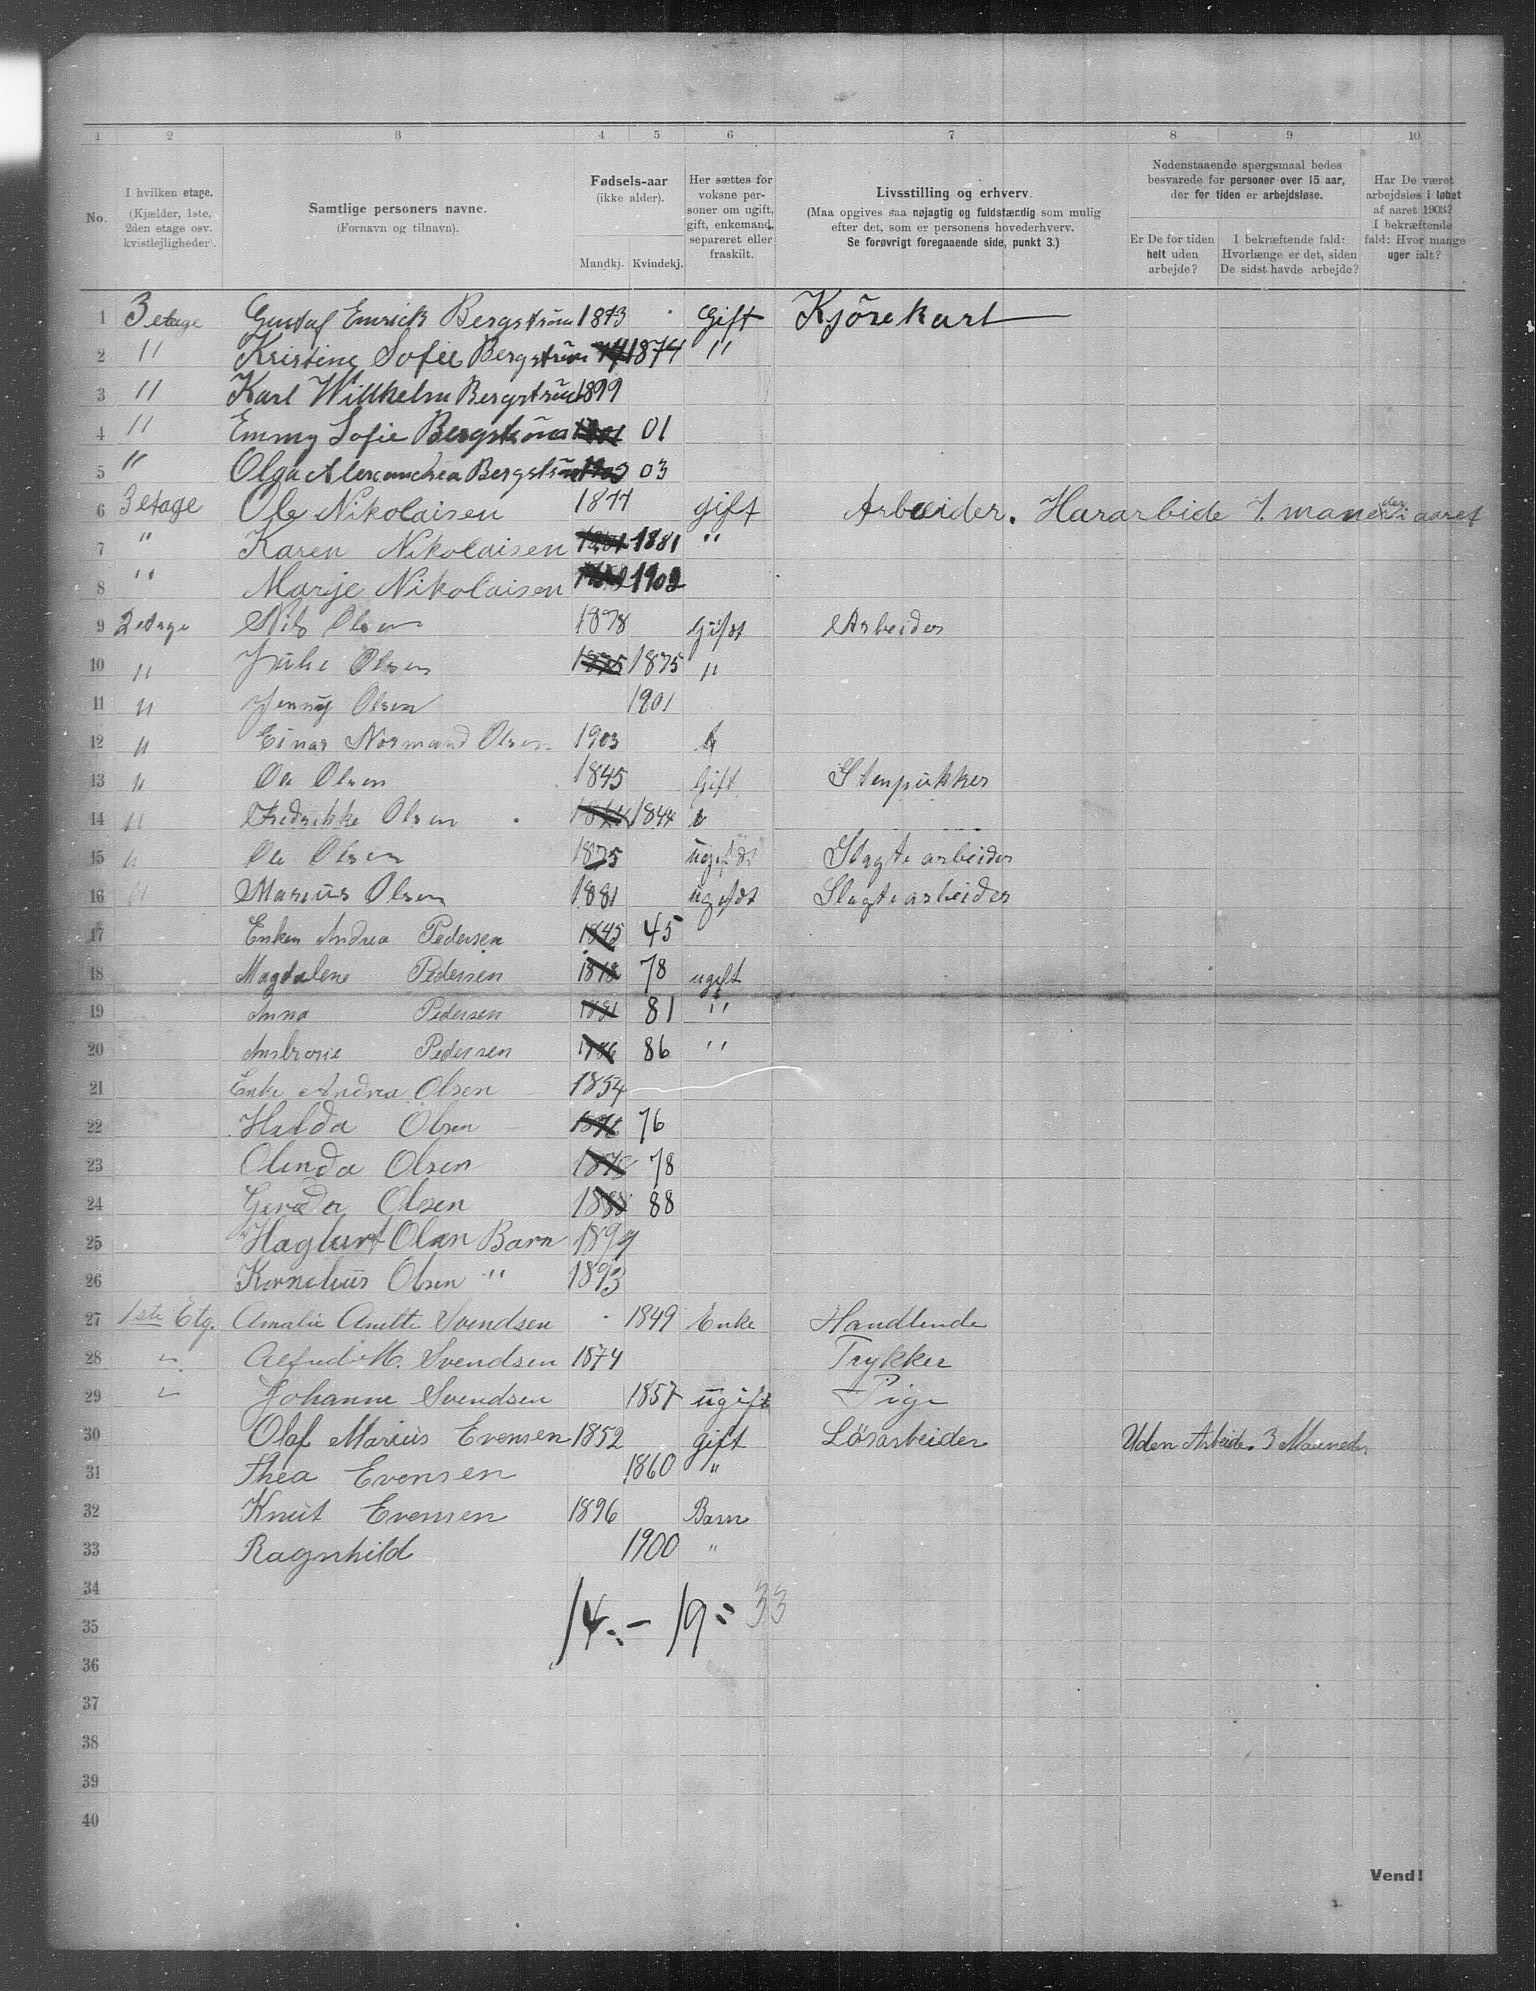 1 2 3 4 5 6 7 8 9 10
No.
I hvilken etage. (Kjælder, 1ste, 2den etage osv. kvistlejligheder).
Samtlige personers navne. (Fornavn og tilnavn).
Fødsels-aar (ikke alder). Mandkj. Kvindekj.
Her sættes for voksne personer om ugift, gift, enkemand, separeret eller fraskilt.
Livsstilling og erhverv. (Maa opgives saa nøjagtig og fuldstændig som mulig efter det, som er personens hovederhverv. Se forøvrigt foregaaende side, punkt 3.)
Nedenstaaende spørgsmaal bedes besvarede for personer over 15 aar, der for tiden er arbejdsløse.
Er De for tiden helt uden arbejde?
I bekræftende fald: Hvorlænge er det, siden De sidst havde arbejde?
Har De været arbejdsløs i løbet af aaret 1903? I bekræftende fald: Hvor mange uger ialt?
1 3 etage Gustaf Emrick Bergström 1873 Gift Kjörekarl
2 " Kristine Sofie Bergström 1874 "
3 " Karl Willhelm Bergström 1899
4 " Emmy Sofie Bergström 1901 01
5 " Olga Alexandrea Bergström 1903 03
6 3 etage Ole Nikolaisen 1877 gift Arbeider. Hararbide 7. maneder i aaret
7 " Karen Nikolaisen 1881 "
8 " Marje Nikolaisen 1902
9 2 etage Nils Olsen 1878 Gifdt Arbeider
10 " Julie Olsen 1875 1875 "
11 " Jenny Olsen 1901
12 " Einar Normand Olsen 1903
13 " Ole Olsen 1845 Gift Stenpukker
14 " Fredrikke Olsen 1844 1844
15 " Ole Olsen 1875 ugifdt Slagte arbeider
16 " Marius Olsen 1881 ugifdt Slagte arbeider
17 Enken Andrea Pedersen 1845 45
18 Magdalene Pedersen 1878 78 ugift
19 Anna Pedersen 1881 81 "
20 Ambrosie Pedersen 1886 86 "
21 Enke Andrea Olsen 1854
22 Hulda Olsen 1876 76
23 Olinda Olsen 1878 78
24 Gerda Olsen 1888 88
25 Haglurt Olsen Barn 1899
26 Kornelius Olsen " 1893
27 1ste Etg. Amalie Anette Svendsen 1849 Enke Handlende
28 " Alfred M. Svendsen 1874 Trykker
29 " Johanne Svendsen 1857 ugift Pige
30 Olaf Marius Evensen 1852 gift Lösarbeider Uden Arbeide. 3 Maaneder
31 Thea Evensen 1860 "
32 Knut Evensen 1896 Barn
33 Ragnhild 1900 "
34
14.- 19 = 33
35
36
37
38
39
40
Vend!